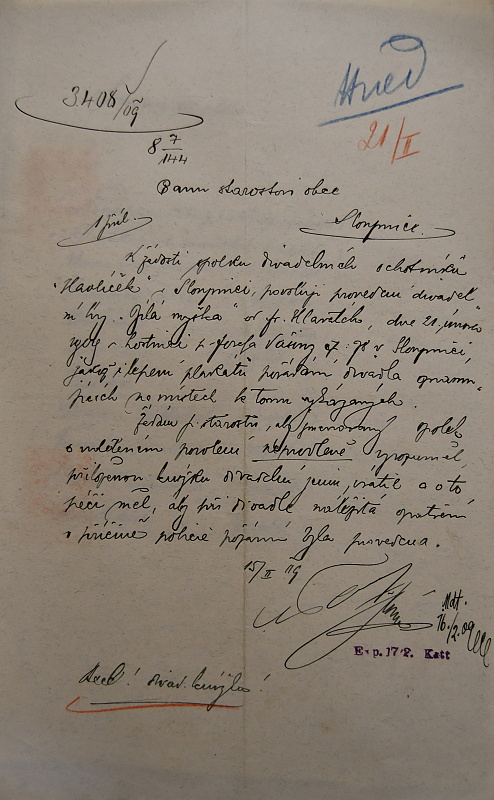 3408/09
8 7/144
Hned
21/II
Panu starostovi obce
1 příl.
Sloupnice.
K žádosti spolku divadelních ochotníků
"Havlíček" v Sloupnici, povoluji provedení divadel
ní hry "Bílá myška" od fr. Hlavatého, dne 21. února
1909 v hostinci p. Josefa Vašiny čp. 98 v Sloupnici,
jakož i lepení plakátů pořádání divadla oznamu-
jících na místech k tomu vykázaných.
Žádám p. starostu, aby jmenovaný spolek
o uděleném povolení neprodleně vyrozuměl,
přiloženou knížku divadelní jemu vrátil a o to
péči měl, aby při divadle náležitá opatření
v příčině policie požární byla provedena.
15/II 09
Mdt.
16./2. 09
Exp. 17/2. Katt
divad. knížka!